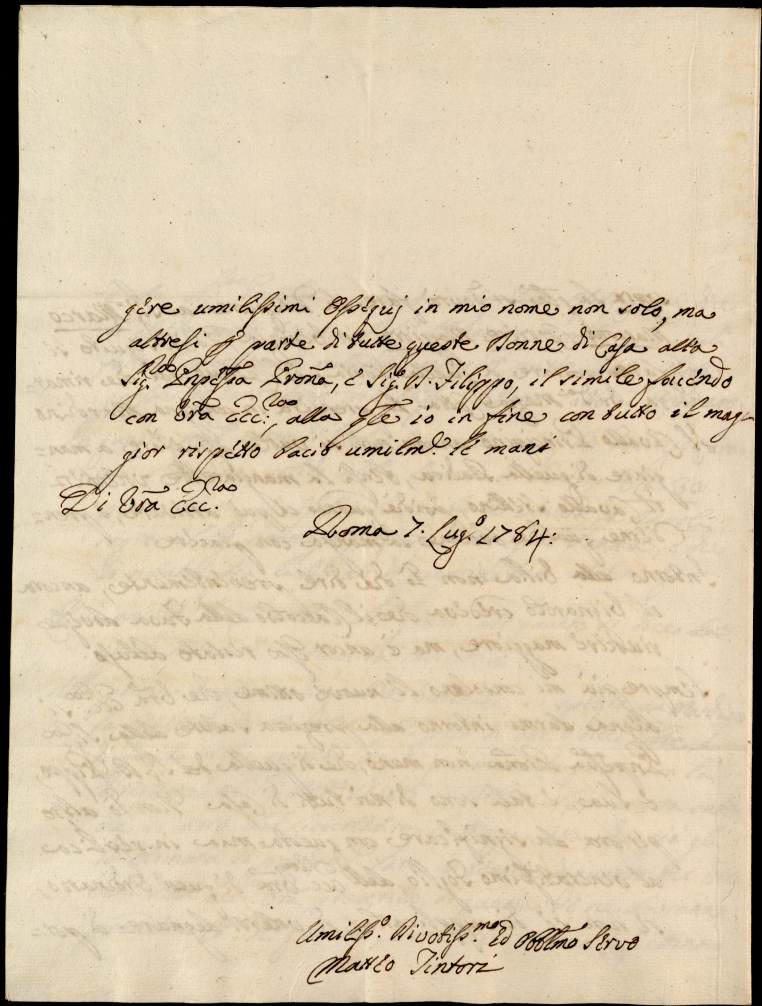 gere umilissimi Ossequj in mio nome non solo, ma
altresì p parte di tutte queste Donne di Casa alla
Sig.ra Pnpessa Proña, e Sig.r D. Filippo, il simile facendo
con Vrã Ecc.za, alla qle io in fine con tutto il mag-
gior rispetto bacio umilmẽ. le mani
Di Vrã Ecc.za
Roma 7. Lug.o 1784:
Umiliss.o Divotiss.mo ed Obblmo Servo
Matteo Tintori